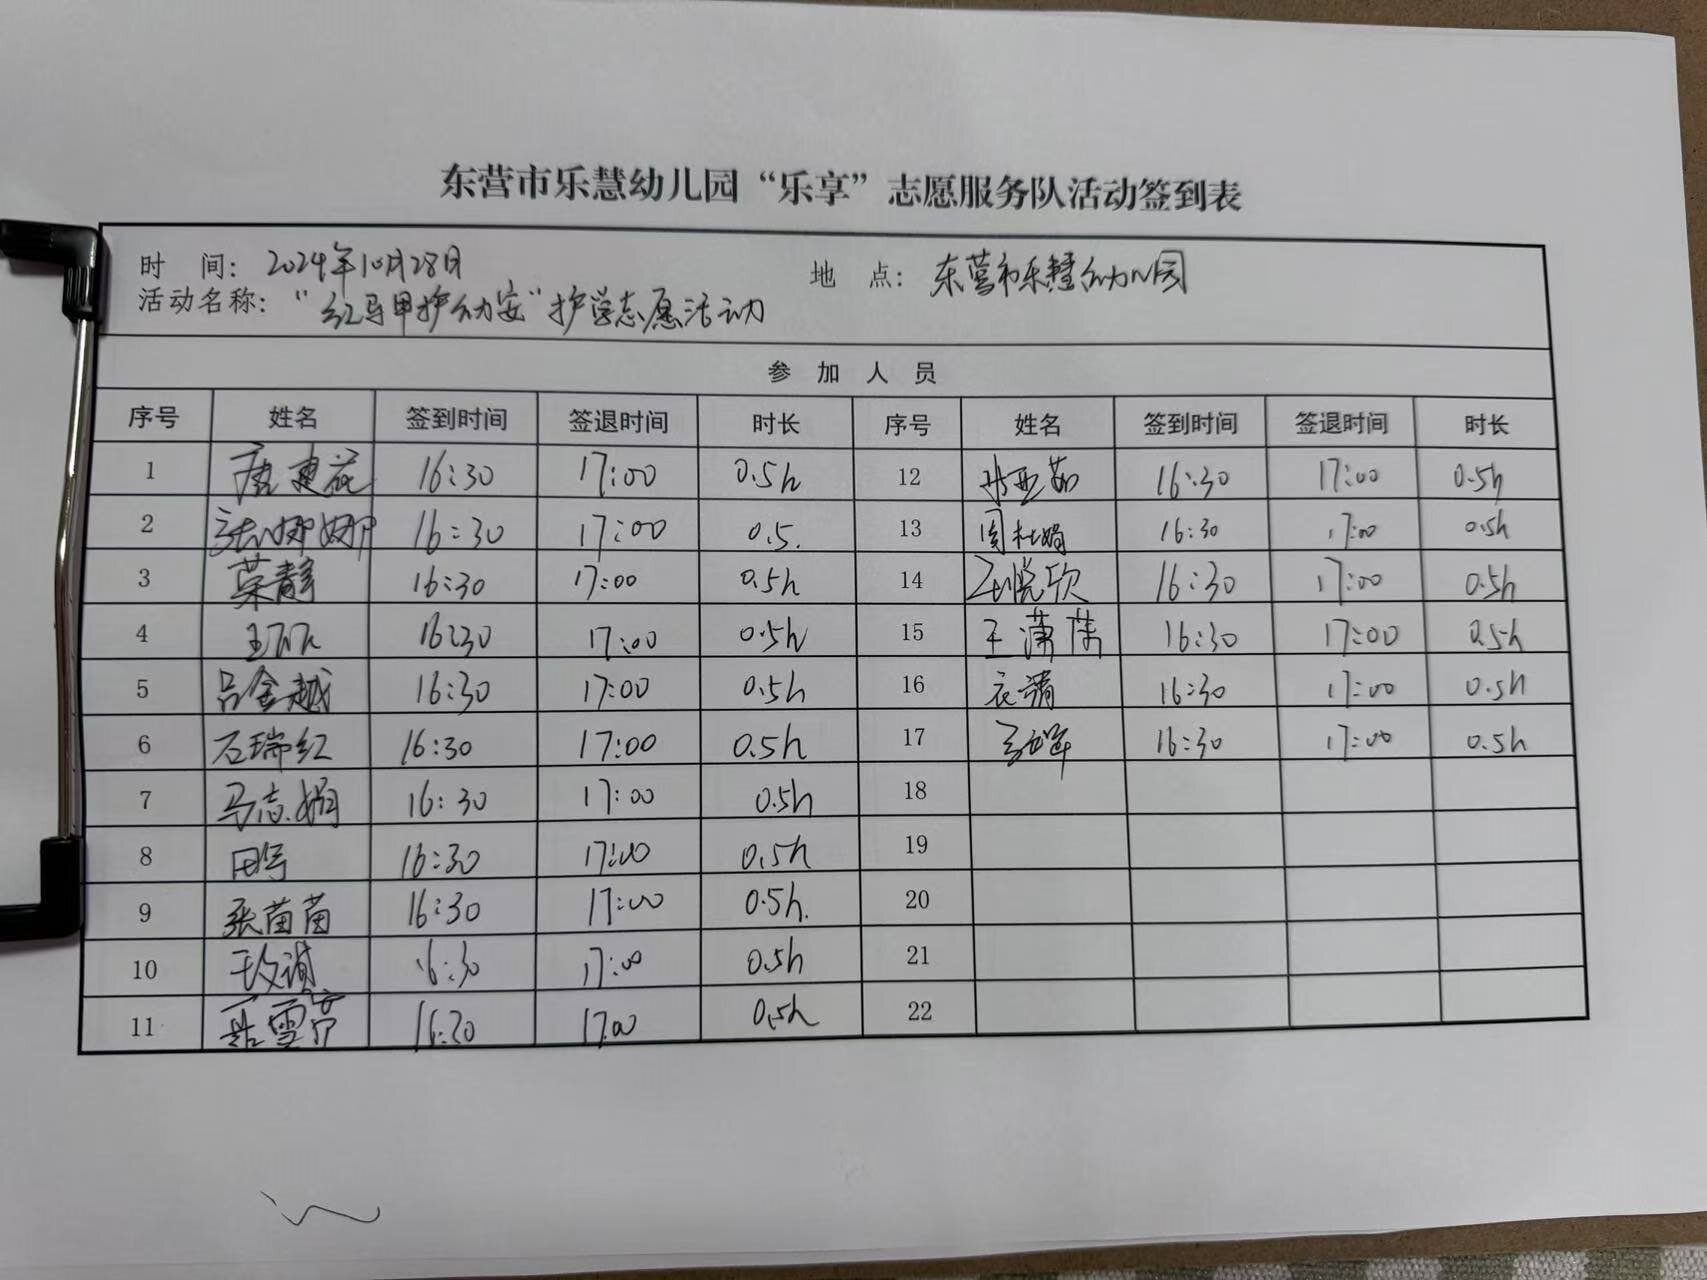 东营市乐慧幼儿园“乐享”志愿服务队活动签到表
时 间：2024年10月28日 地 点：东营市乐慧幼儿园
活动名称：“红马甲护幼安”护学志愿活动
参 加 人 员
序号 姓名 签到时间 签退时间 时长 序号 姓名 签到时间 签退时间 时长
1 唐建花 16:30 17:00 0.5h 12 亚茹 16:30 17:00 0.5h
2 娜娜 16:30 17:00 0.5. 13 周杜娟 16:30 17:00 0.5h
3 荣静 16:30 17:00 0.5h 14 悦欣 16:30 17:00 0.5h
4 王 16:30 17:00 0.5h 15 王潇 16:30 17:00 0.5h
5 吕金越 16:30 17:00 0.5h 16 衣清 16:30 17:00 0.5h
6 石瑞红 16:30 17:00 0.5h 17 16:30 17:00 0.5h
7 马志娟 16:30 17:00 0.5h 18
8 田 16:30 17:00 0.5h 19
9 张苗苗 16:30 17:00 0.5h. 20
10 16:30 17:00 0.5h 21
11 雪 17:00 0.5h 22